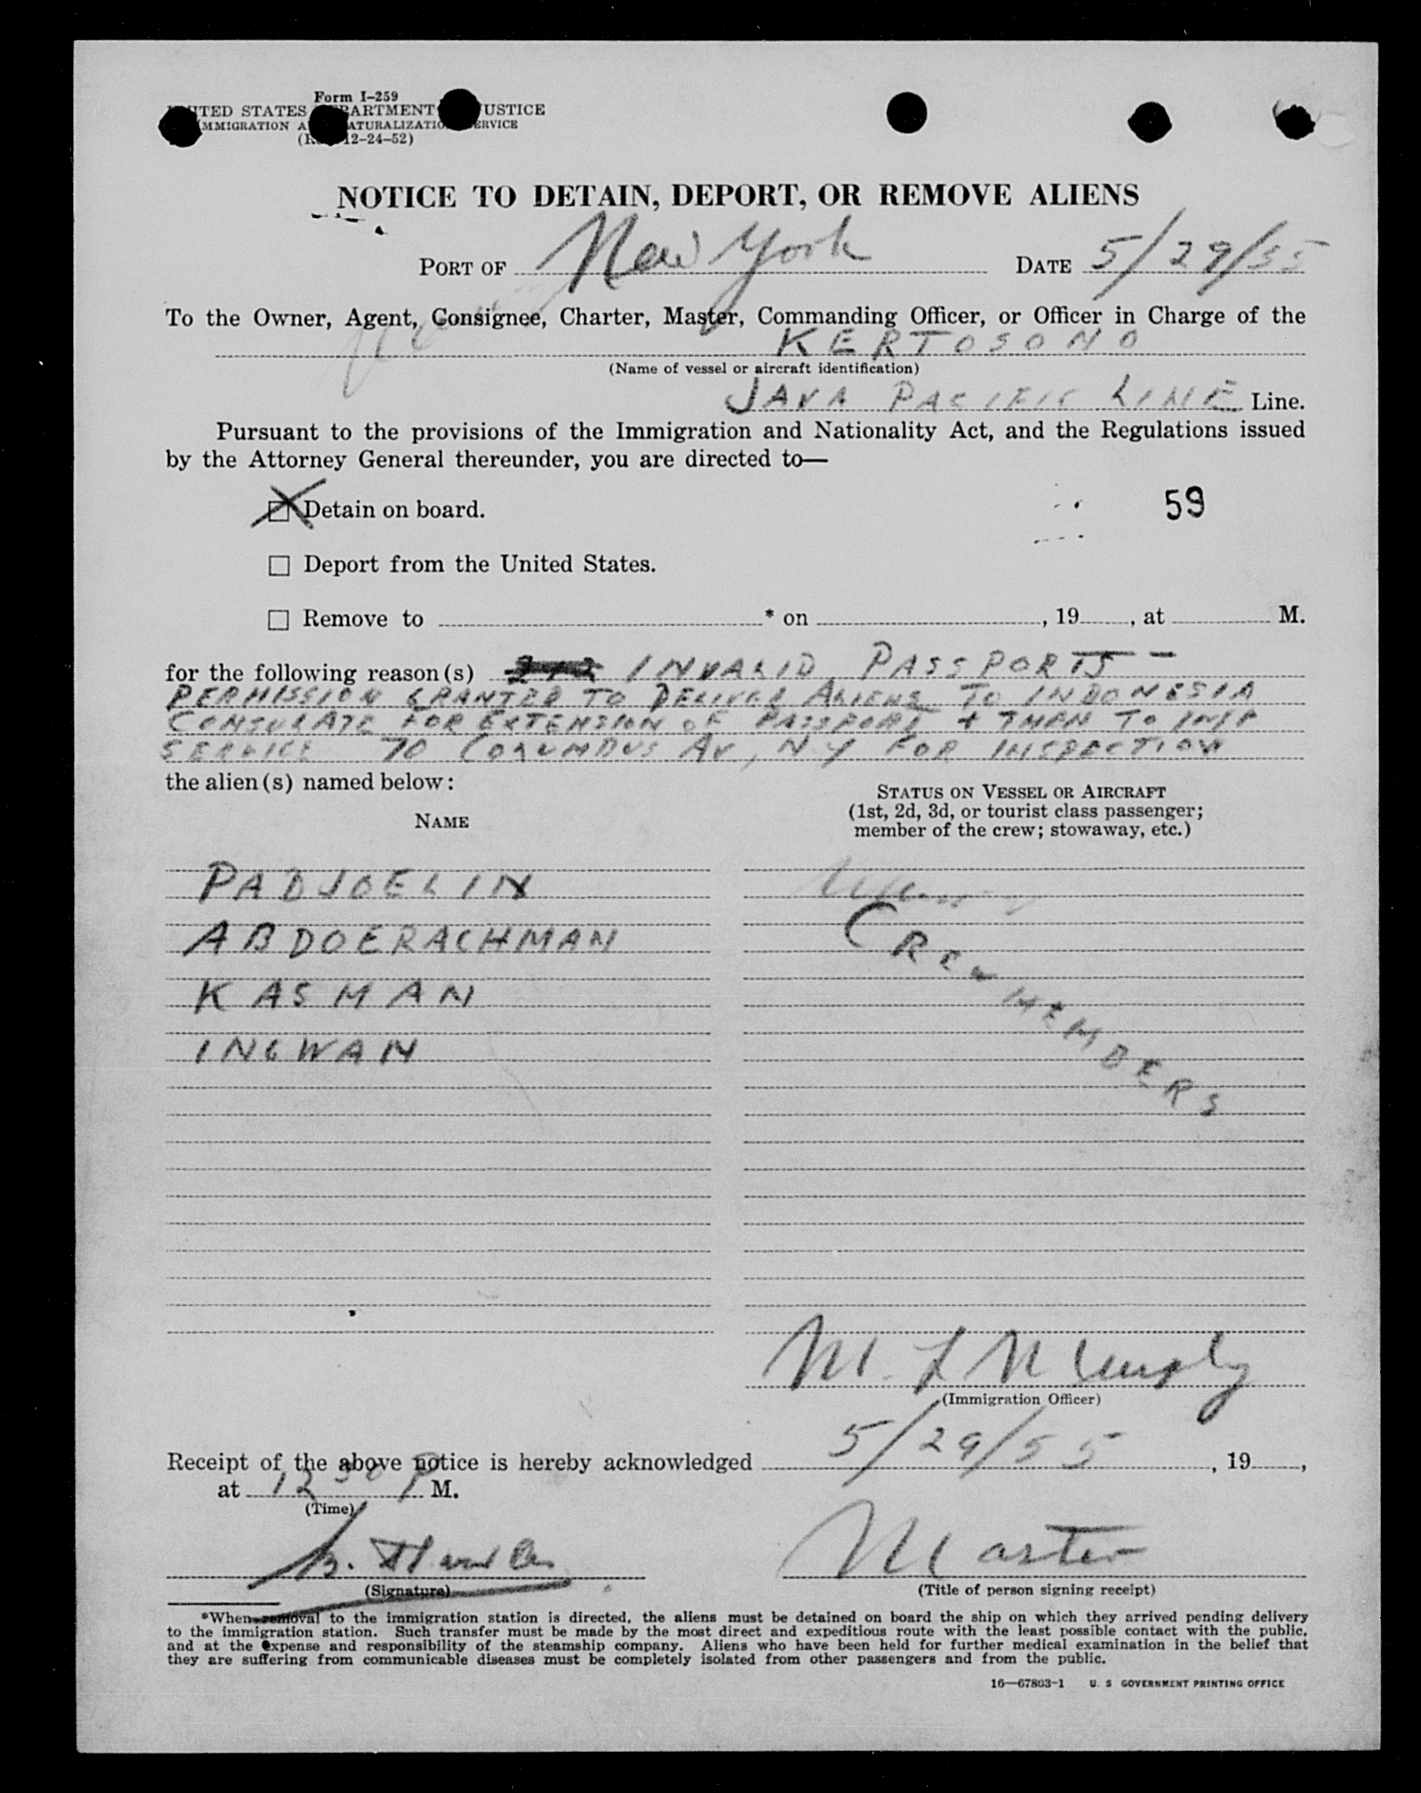 Form I-259
UNITED STATES DEPARTMENT OF JUSTICE
IMMIGRATION AND NATURALIZATION SERVICE
(Rev. 12-24-52)
NOTICE TO DETAIN, DEPORT, OR REMOVE ALIENS
PORT OF New York DATE 5/29/55
To the Owner, Agent, Consignee, Charter, Master, Commanding Officer, or Officer in Charge of the
KERTOSONO
(Name of vessel or aircraft identification)
JAVA PACIFIC LINE Line.
Pursuant to the provisions of the Immigration and Nationality Act, and the Regulations issued
by the Attorney General thereunder, you are directed to—
☒ Detain on board.
59
☐ Deport from the United States.
☐ Remove to * on , 19 , at M.
for the following reason(s) INVALID PASSPORTS -
PERMISSION GRANTED TO DELIVER ALIENS TO INDONESIA
CONSULATE FOR EXTENSION OF PASSPORT + THEN TO
SERVICE 70 COLUMBUS AV, N Y FOR INSPECTION
the alien(s) named below:
NAME
STATUS ON VESSEL OR AIRCRAFT
(1st, 2d, 3d, or tourist class passenger;
member of the crew; stowaway, etc.)
PADJOELIN
ABDOERACHMAN
KASMAN
INGWAN
CREW MEMBERS
M. L. Murphy
(Immigration Officer)
Receipt of the above notice is hereby acknowledged 5/29/55 , 19 ,
at 12 30 P M.
(Time)
Master
(Signature) (Title of person signing receipt)
*When removal to the immigration station is directed, the aliens must be detained on board the ship on which they arrived pending delivery
to the immigration station. Such transfer must be made by the most direct and expeditious route with the least possible contact with the public,
and at the expense and responsibility of the steamship company. Aliens who have been held for further medical examination in the belief that
they are suffering from communicable diseases must be completely isolated from other passengers and from the public.
16—67863-1 U. S GOVERNMENT PRINTING OFFICE